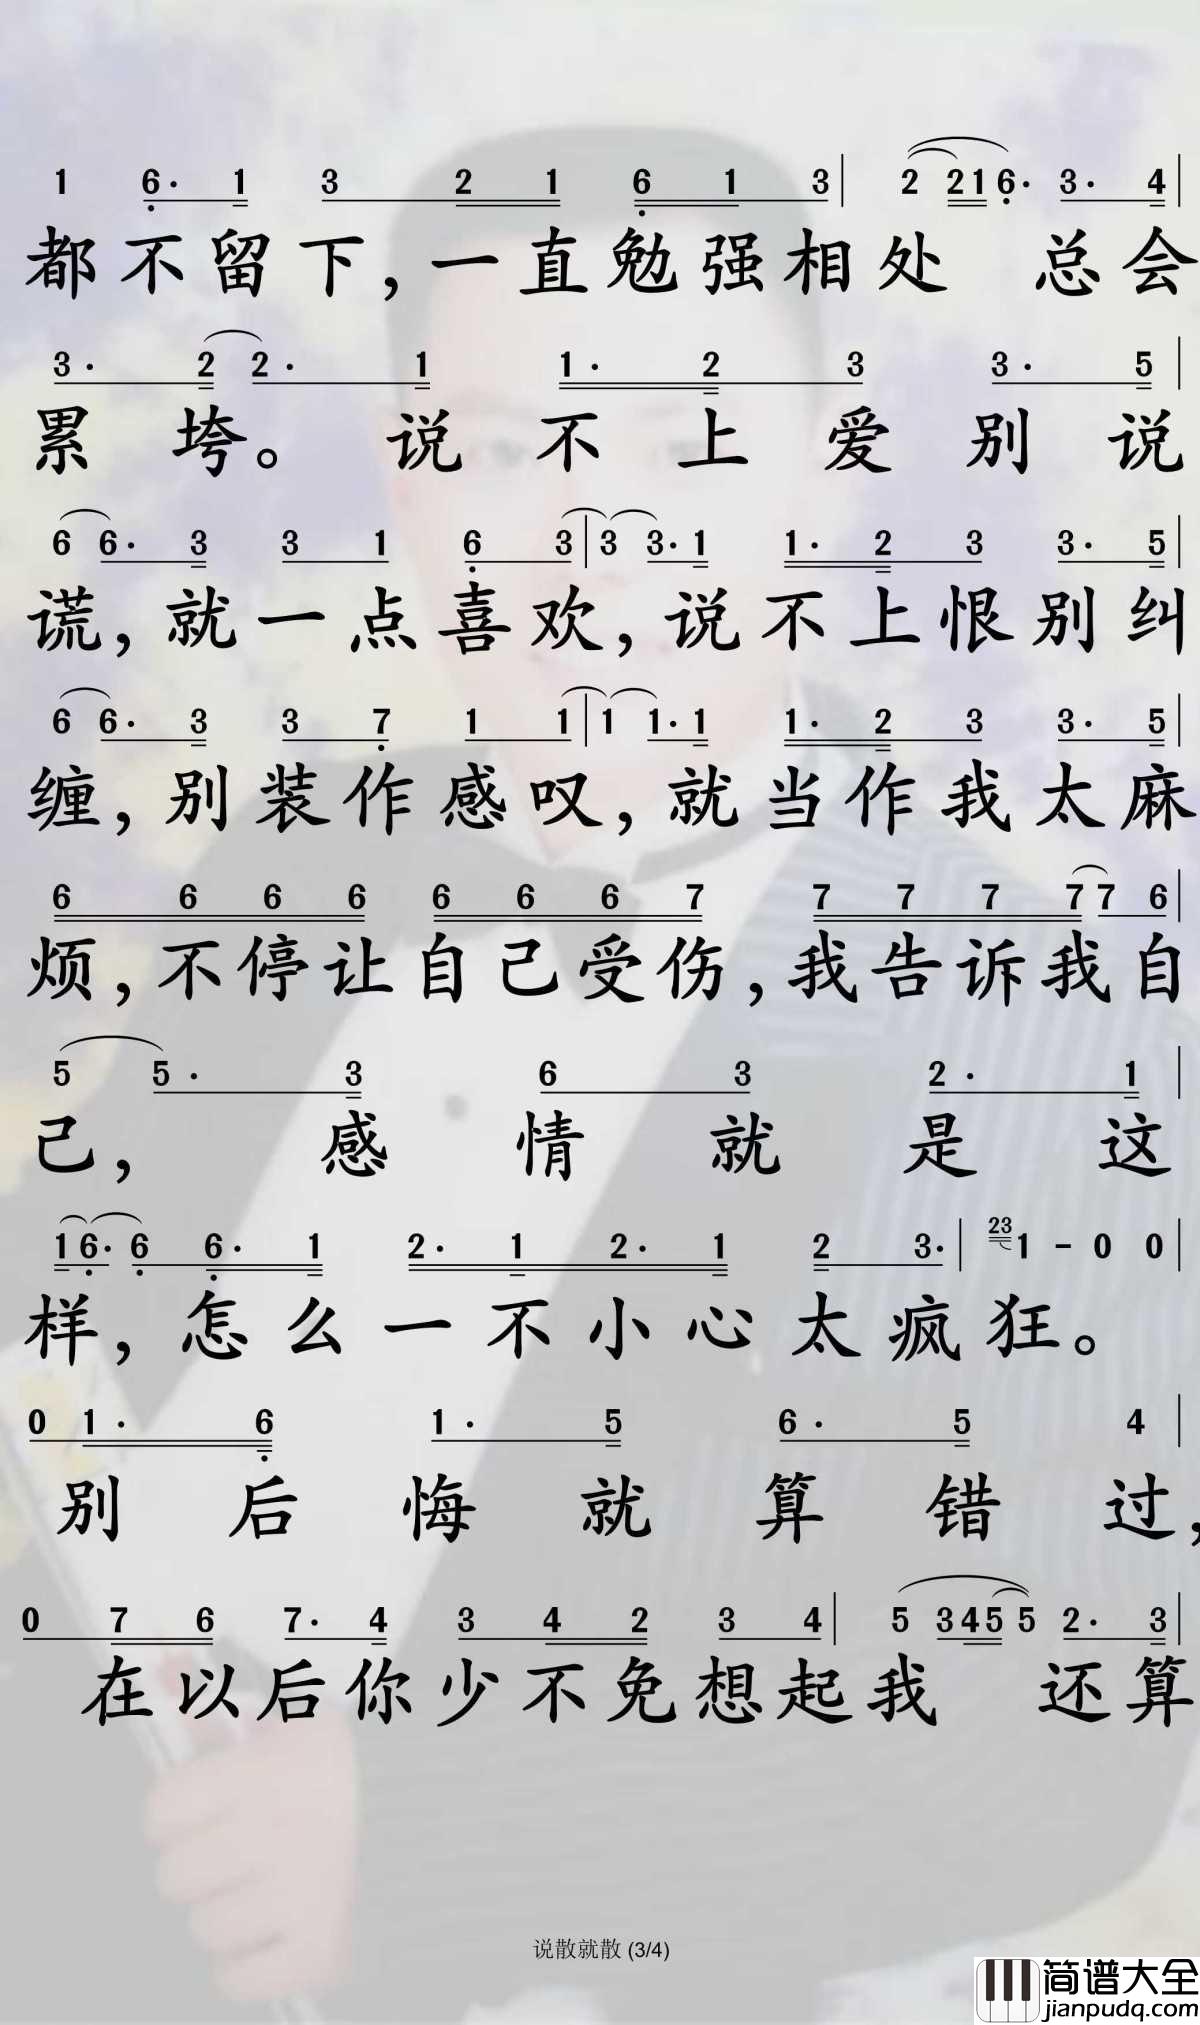 1 6· 1 3 2 1 6 1 3 | 2 2 1 6· 3· 4 |
都不留下,一直勉强相处 总会
3· 2 2· 1 1· 2 3 3· 5 |
累垮。说不上爱别说
6 6· 3 3 1 6 3 | 3 3· 1 1· 2 3 3· 5 |
谎,就一点喜欢,说不上恨别纠
6 6· 3 3 7 1 1 | 1 1· 1 1· 2 3 3· 5 |
缠,别装作感叹,就当作我太麻
6 6 6 6 6 6 6 7 7 7 7 7 7 6 |
烦,不停让自己受伤,我告诉我自
5 5· 3 6 3 2· 1 |
己,感情就是这
1 6· 6 6· 1 2· 1 2· 1 2 3· | 23 1 - 0 0 |
样,怎么一不小心太疯狂。
0 1· 6 1· 5 6· 5 4 |
别后悔就算错过,
0 7 6 7· 4 3 4 2 3 4 | 5 3 4 5 5 2· 3 |
在以后你少不免想起我 还算
说散就散 (3/4)
简谱大全
jianpudq.com